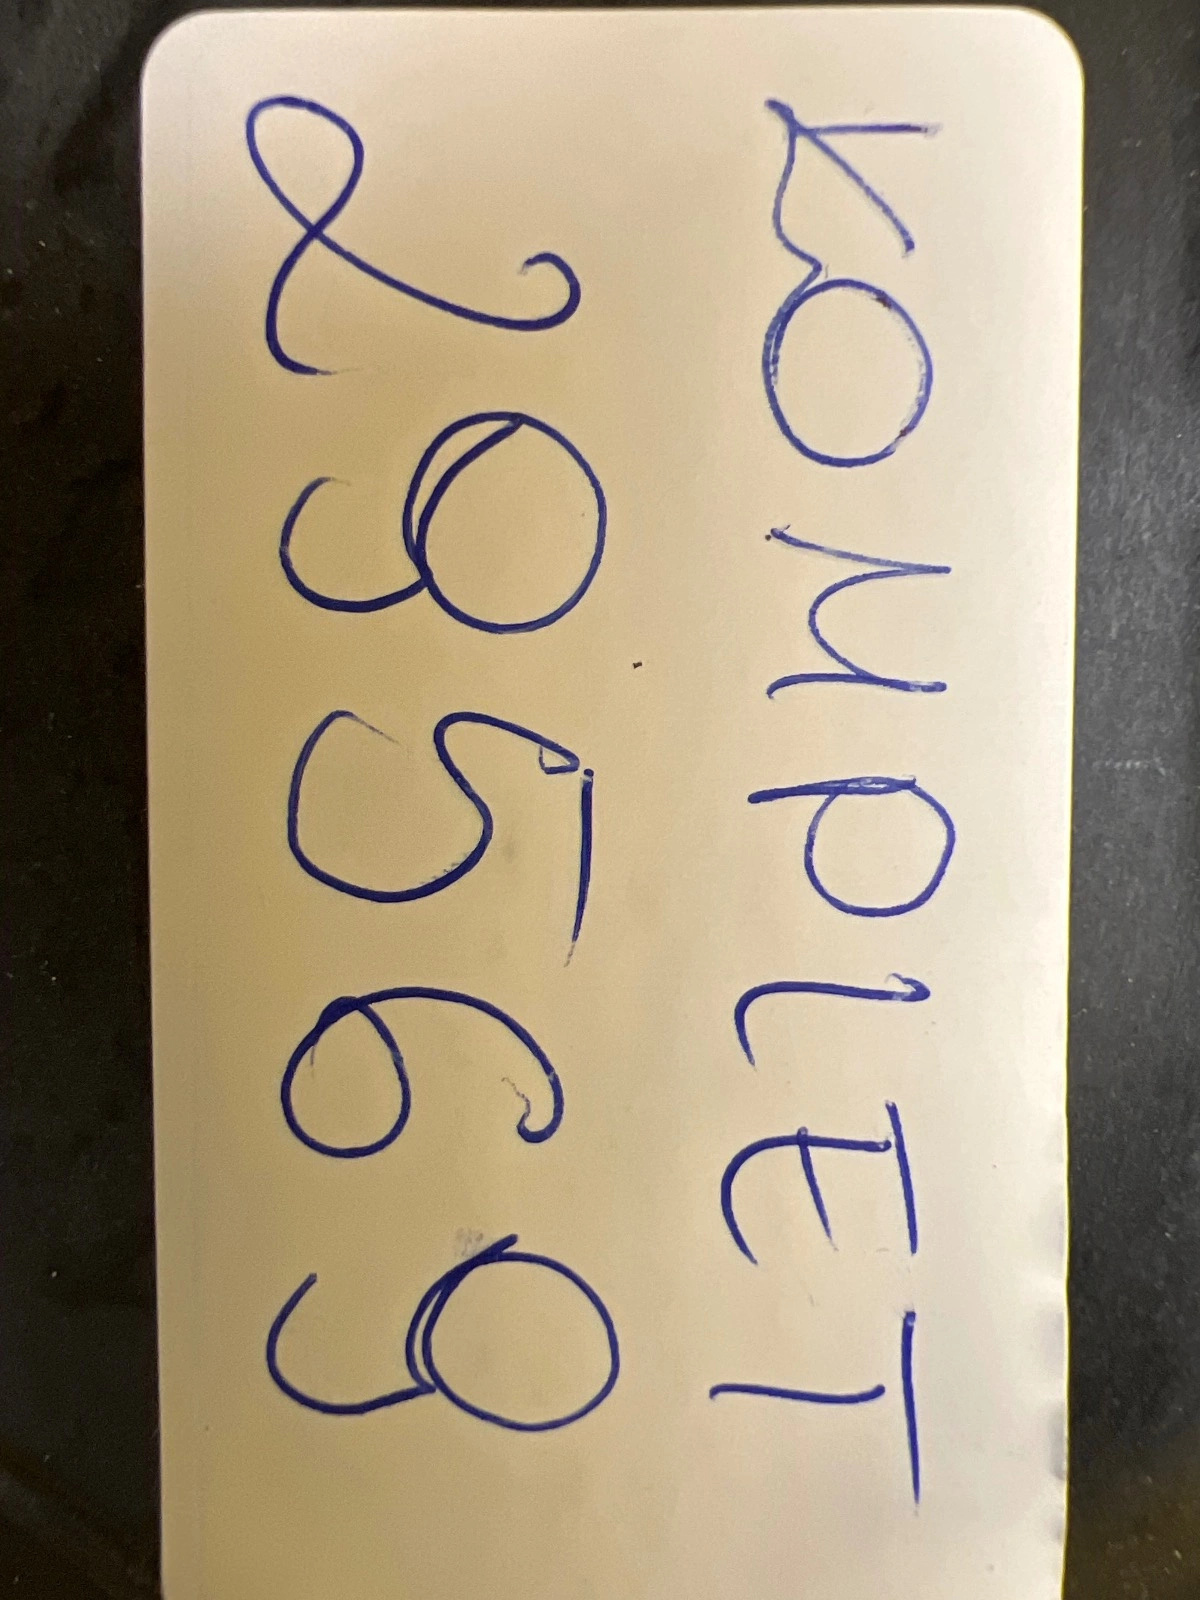 KOMPLET
29569